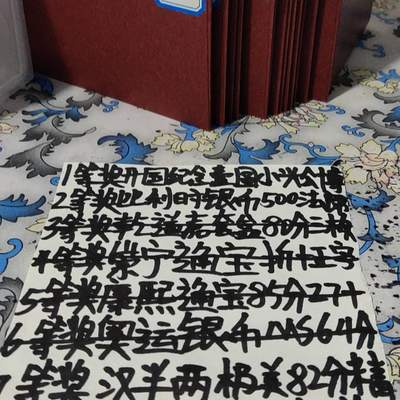 1等奖开国纪念壹圆小兴合博
2等奖比利时银币500法郎
3等奖乾隆套盒80分三枚
4等奖崇宁通宝折十
5等奖康熙通宝85分27+
6等奖奥运银币AAS64分
7等奖汉半两极美82分